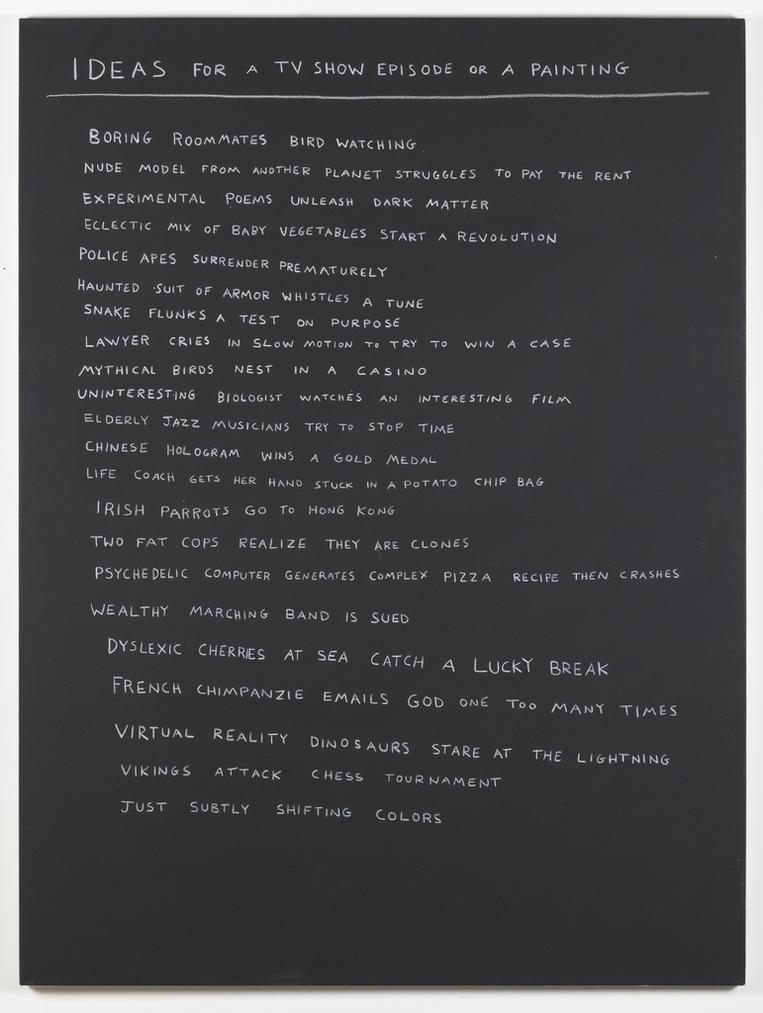 IDEAS FOR A TV SHOW EPISODE OR A PAINTING
BORING ROOMMATES BIRD WATCHING
NUDE MODEL FROM ANOTHER PLANET STRUGGLES TO PAY THE RENT
EXPERIMENTAL POEMS UNLEASH DARK MATTER
ECLECTIC MIX OF BABY VEGETABLES START A REVOLUTION
POLICE APES SURRENDER PREMATURELY
HAUNTED SUIT OF ARMOR WHISTLES A TUNE
SNAKE FLUNKS A TEST ON PURPOSE
LAWYER CRIES IN SLOW MOTION TO TRY TO WIN A CASE
MYTHICAL BIRDS NEST IN A CASINO
UNINTERESTING BIOLOGIST WATCHES AN INTERESTING FILM
ELDERLY JAZZ MUSICIANS TRY TO STOP TIME
CHINESE HOLOGRAM WINS A GOLD MEDAL
LIFE COACH GETS HER HAND STUCK IN A POTATO CHIP BAG
IRISH PARROTS GO TO HONG KONG
TWO FAT COPS REALIZE THEY ARE CLONES
PSYCHEDELIC COMPUTER GENERATES COMPLEX PIZZA RECIPE THEN CRASHES
WEALTHY MARCHING BAND IS SUED
DYSLEXIC CHERRIES AT SEA CATCH A LUCKY BREAK
FRENCH CHIMPANZIE EMAILS GOD ONE TOO MANY TIMES
VIRTUAL REALITY DINOSAURS STARE AT THE LIGHTNING
VIKINGS ATTACK CHESS TOURNAMENT
JUST SUBTLY SHIFTING COLORS